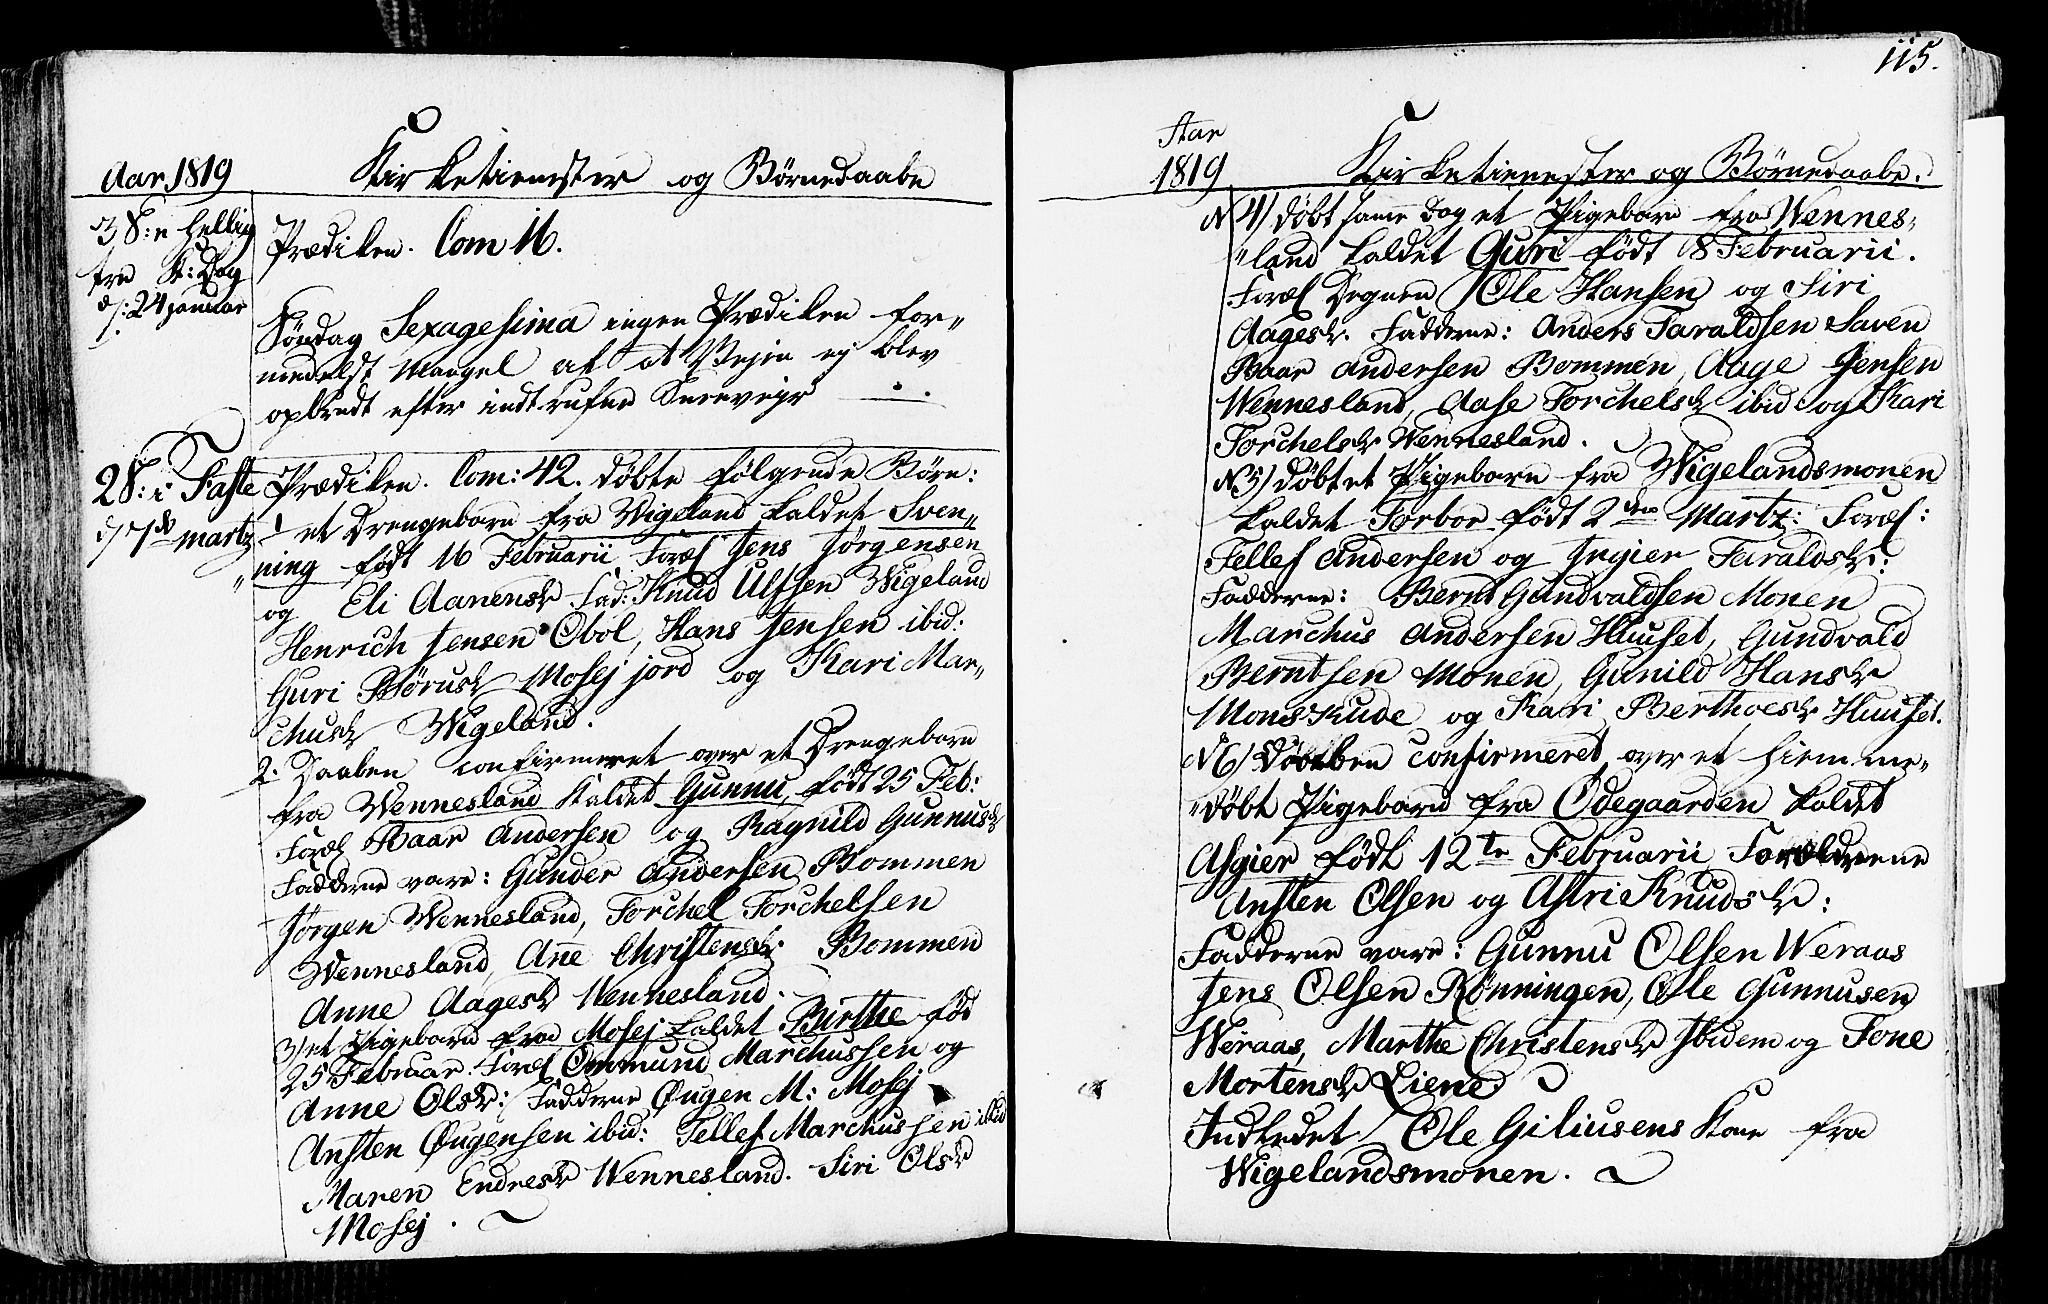 Aar 1819
Kirketienester og Børnedaabe
3 S: n Hellig
tre K: Dag
d: 24 januar
Prædiken. Com 16.
Søndag Sexagesima ingen Prædiken for„
medelst Mangel af at Vejen ej blev
opbrødt efter indtrufne Sneevejr
2 S: i Faste
d 7de martz
Prædiken. Com: 42. døbte følgende Børn:
1 et Drengebarn fra Wigeland kaldet Sven„
„ning født 16 Februarii Foræl Jens Jørgensen
og Eli Aanensdr Fad: Knud Ulfsen Wigeland
Henrich Jensen Obøl, Hans Jensen ibid:
Guri Børusdr Mosejjord og Kari Mar„
chusdr Wigeland.
2. Daaben confirmeret over et Drengebarn
fra Wennesland Kaldet Gunnu, født 25 Feb:
Foræl Baar Andersen og Ragnild Gunnusdr
Fadderne vare: Gunder Andersen Bommen
Jørgen Wennesland, Torchel Torchelsen
Wennesland, Ane Christensdr Bommen
Anne Aagesdr Wennesland.
3) et Pigebarn fra Mosej kaldet Birthe fød
25 Februar. Foræl Ommund Marchussen og
Anne Olsdr: Fadderne Øugen M: Mosej
Ansten Øugensen ibid: Tellef Marchussen ibid
Maren Endresdr Wennesland. Siri Olsdr
Mosej.
115.
Aar
1819
Kirketienester og Børnedaabe.
N 4) døbt samme dag et Pigebarn fra Wennes„
„land kaldet Guri født 8 Februarii.
Foræl Degnen Ole Hansen og Siri
Aagesdr. Fadderne: Anders Taraldsen Saven
Baar Andersen Bommen, Aage Jensen
Wennesland, Aase Torchelsdr ibid og Kari
Torchelsdr Wennesland.
N 5) døbt et Pigebarn fra Wigelandsmonen
kaldet Torbor født 2den Martz: Foræl:
Tellef Andersen og Ingier Taraldsdr:
Fadderne: Bernt Gundvaldsen Monen
Marchus Andersen Huuset, Gundvald
Berntsen Monen, Gunild Hansdr
Monskude og Kari Berthoesdr Huuset.
N 6) Daaben confirmeret over et hiemme„
„døbt Pigebarn fra Ødegaarden kaldet
Asgier født 12te Februarii Forældrene
Ansten Olsen og Astri Knudsdr:
Fadderne vare: Gunnu Olsen Weraas
Jens Olsen Rønningen, Ole Gunnusen
Weraas, Marthe Christensdr Ibidem og Tone
Mortensdr Liene
Indledet Ole Giliusens Kone fra
Wigelandsmonen.